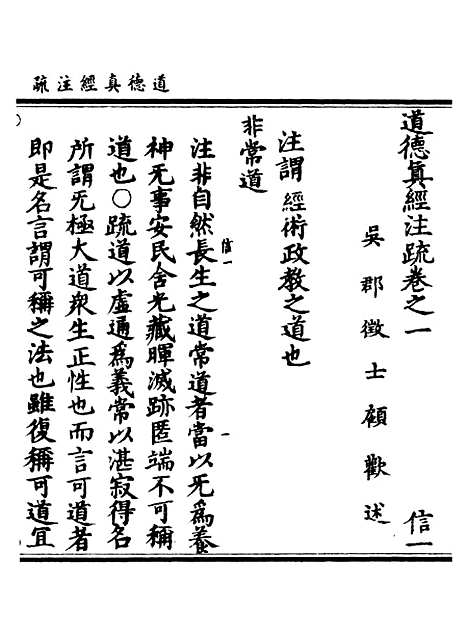 道德真經注疏
道德真經注疏卷之一 信一
吳郡徵士顧歡述
注謂經術政教之道也
非常道
注非自然長生之道常道者當以无為養
神无事安民含光藏暉滅跡匿端不可稱
道也○疏道以虛通為義常以湛寂得名
所謂无極大道衆生正性也而言可道者
即是名言謂可稱之法也雖復稱可道宜
信一
一